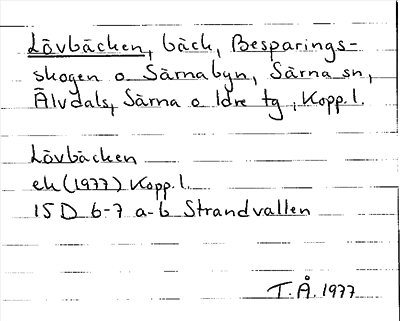 Lövbäcken, bäck, Besparings-
skogen o Särnabyn, Särna sn,
Älvdals, Särna o Idre tg, Kopp. l.
Lövbäcken
ek (1977) Kopp. l.
15 D 6-7 a-b Strandvallen
T. Å. 1977